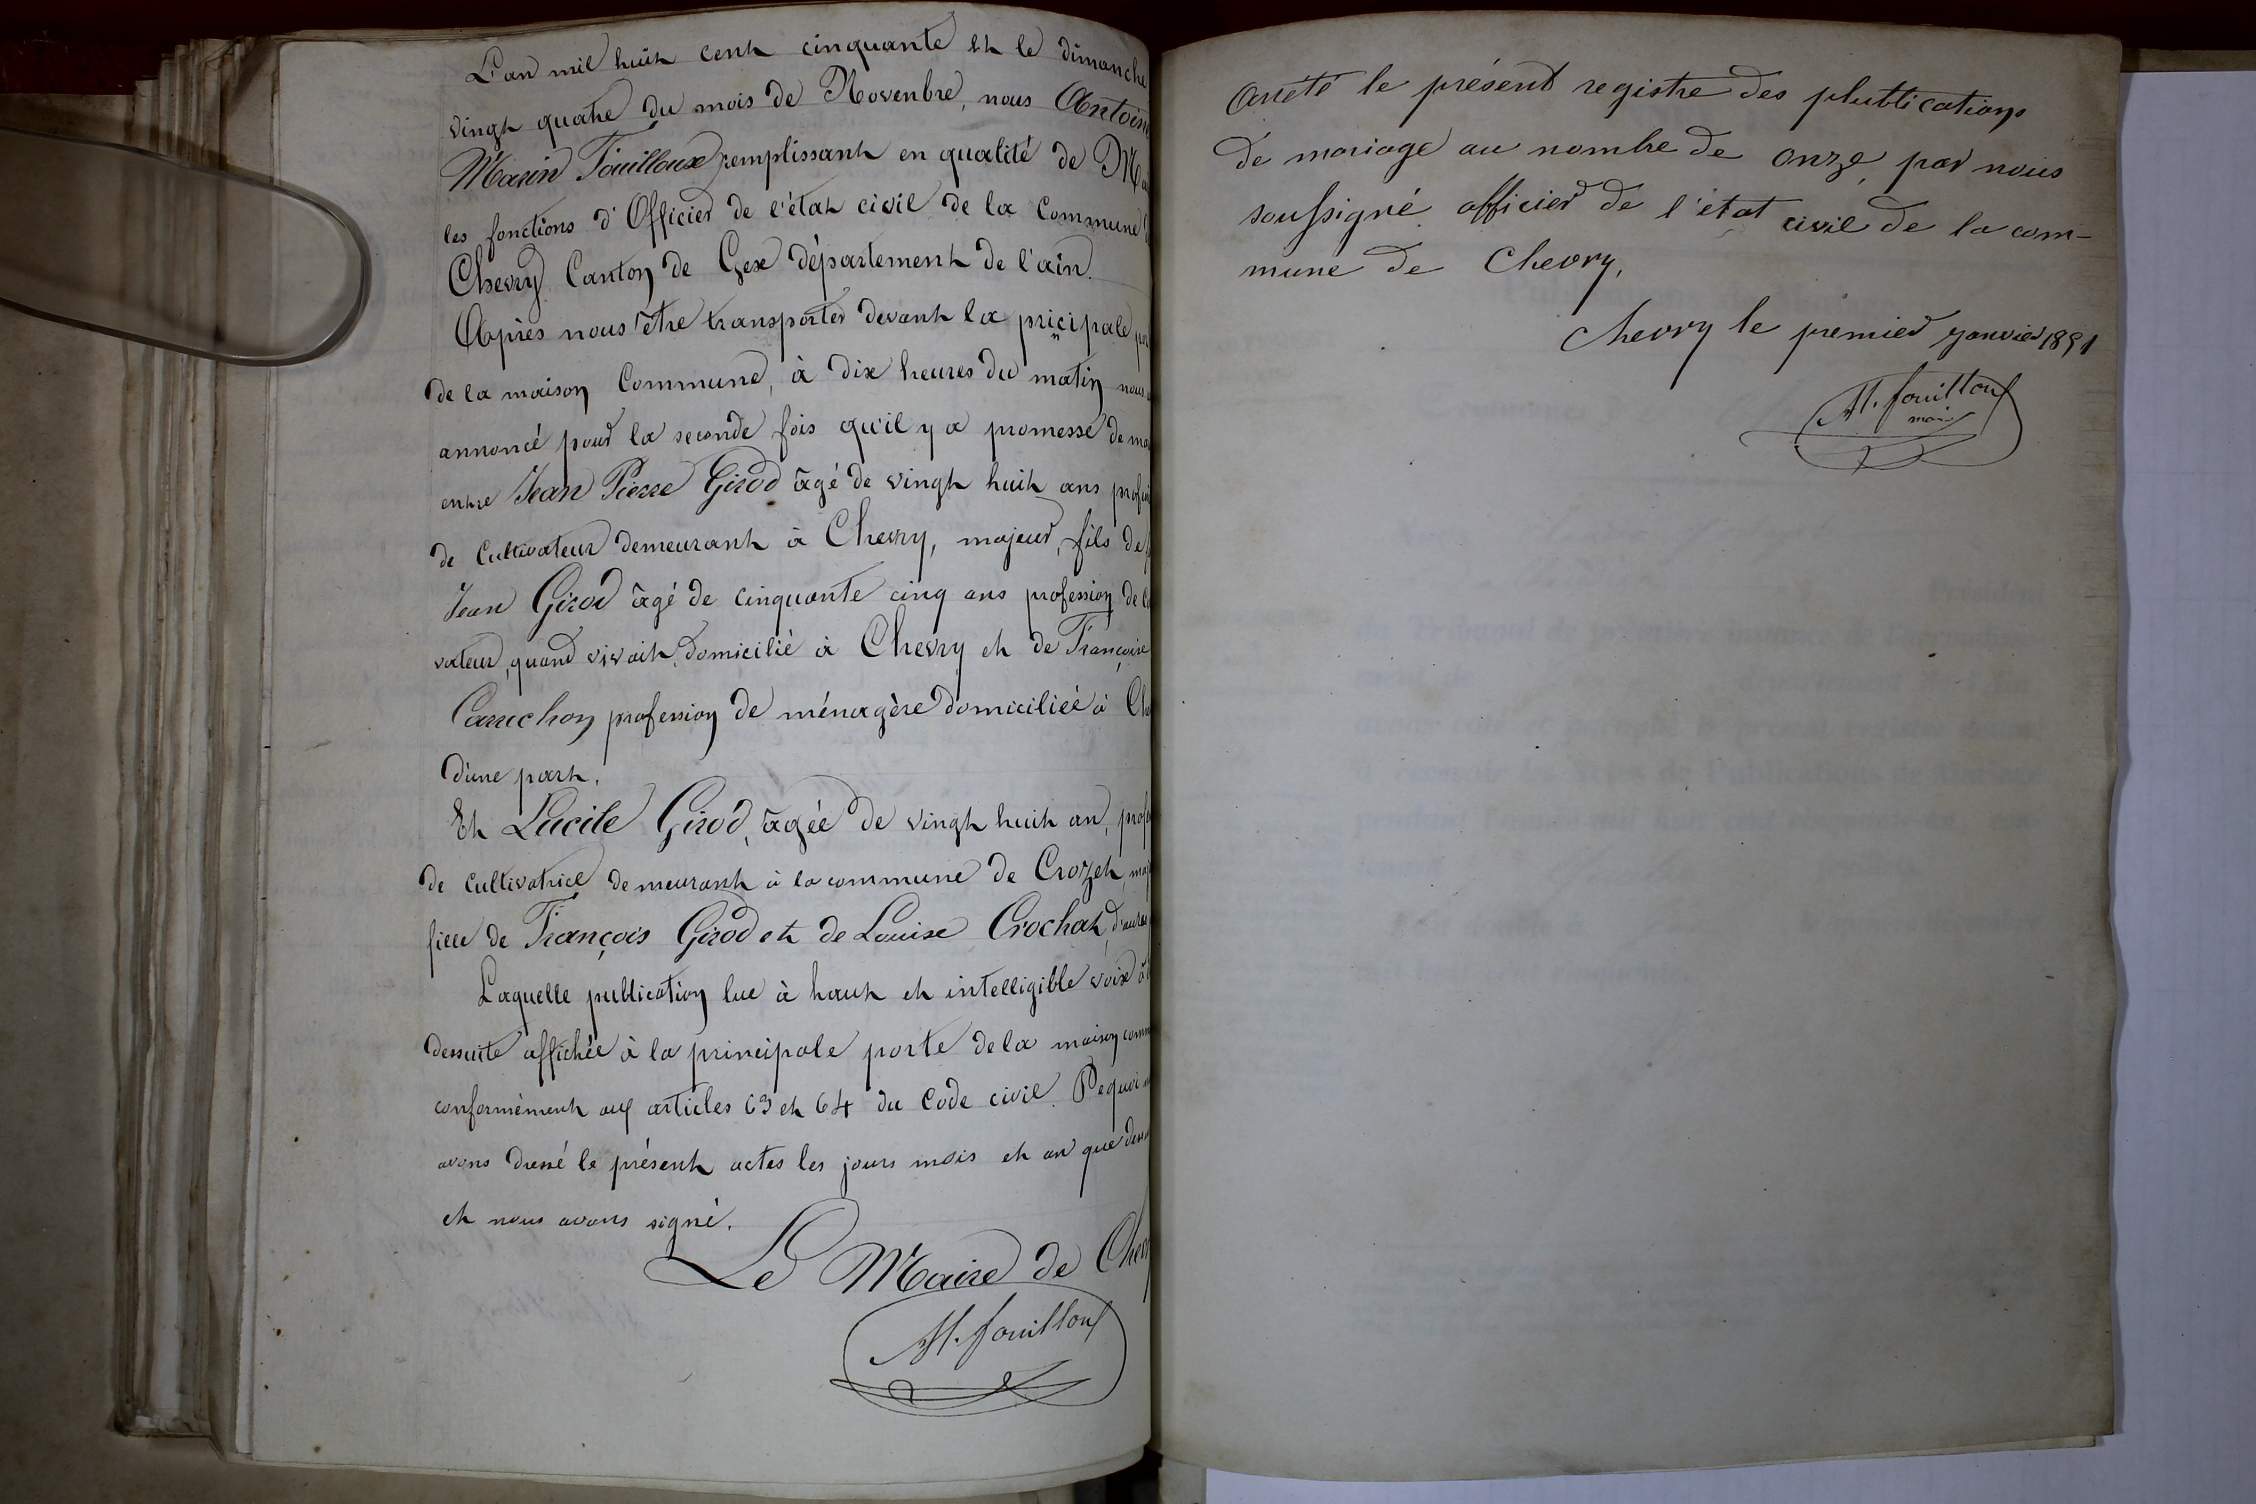 L'an mil huit cent cinquante et le dimanche
vingt quatre du mois de Novenbre, nous Antoine
Marin Fouilloux remplissant en qualité de Ma
les fonctions d'Officier de l'état civil de la Commune
Chevry Canton de Gex département de l'ain.
Après nous être transportés devant la pricipale
de la maison Commune, à dix heures du matin nous
annoncé pour la seconde fois qu'il y a promesse de ma
entre Jean Pierre Girod âgé de vingt huit ans profes
de Cultivateur demeurant à Chevry, majeur, fils de
Jean Girod âgé de cinquante cinq ans profession de
vateur, quand vivait, domicilié à Chevry et de Françoise
Carrichon profession de ménagère domiciliée à Che
d'une part.
Et Lucile Girod, âgée de vingt huit an, profe
de cultivatrice demeurant à la commune de Crozet, maj
fille de François Girod et de Louise Crochat, d'autre
Laquelle publication lue à haut et intelligible voix à
dessuite affichée à la principale porte de la maison comm
conformément aux articles 63 et 64 du Code civil. De quoi
avons dressé le présent actes les jours mois et an que dess
et nous avons signé.
Le Maire de Chev
M. fouilloux
Arrété le présent registre des plublications
de mariage au nombre de onze, par nous
soussigné officier de l'état civil de la com-
mune de Chevry,
Chevry le premier janvier 1851
M. fouilloux
maire